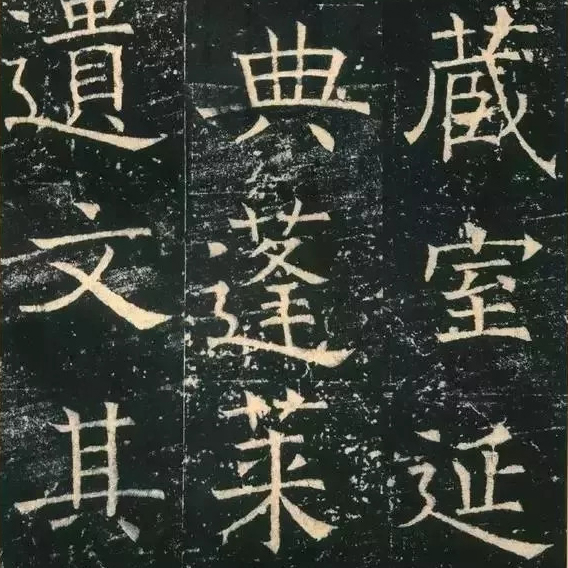 蔵室延
典蓬莱
遺文其